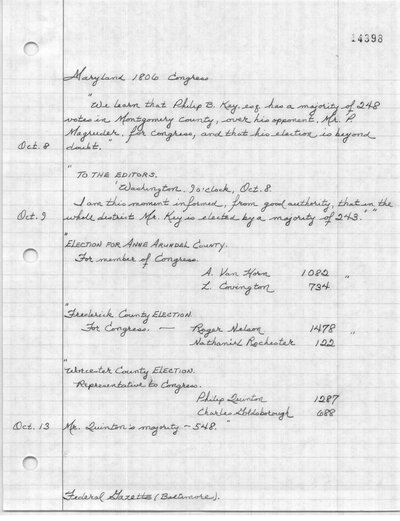 14398
Maryland 1806 Congress
"
"We learn that Philip B. Key, esq. has a majority of 248
votes in Montgomery County, over his opponent, Mr. P.
Magruder, for Congress, and that his election is beyond
Oct. 8 doubt."
"
"TO THE EDITORS.
'Washington, 9 o'clock, Oct. 8.
I am this moment informed, from good authority, that in the
Oct. 9 whole district Mr. Key is elected by a majority of 243.'"
"
ELECTION FOR ANNE ARUNDEL COUNTY.
For member of Congress.
A. Van Horn 1082 "
L. Covington 734
"
Frederick County ELECTION
For Congress. — Roger Nelson 1478 "
Nathaniel Rochester 122
"
Worcester County ELECTION.
Representative to Congress.
Philip Quinton 1287
Charles Goldsborough 688
Oct. 13 Mr. Quinton's majority - 548. "
Federal Gazette (Baltimore).